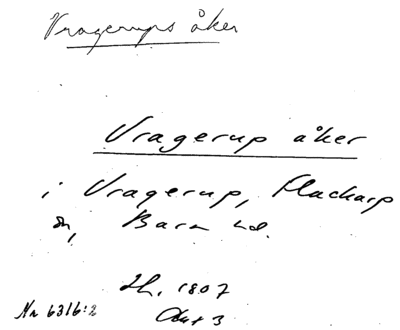 Vragerups åker
Vragerup åker
i Vragerup, Flackarp
sn, Bara hd.
Lh. 1807
Akt 3
Nr 6316:2